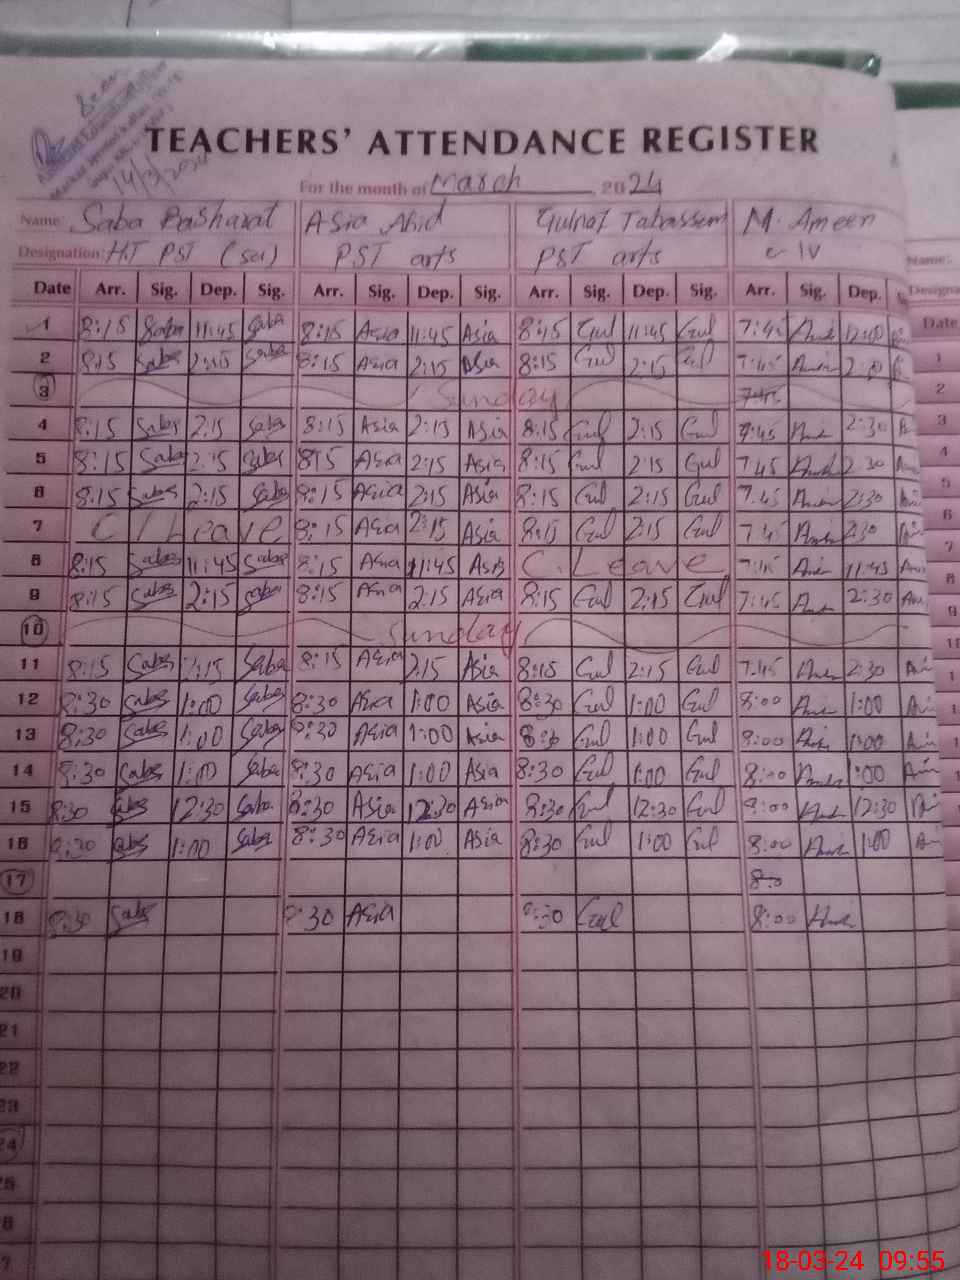 14/3/2024
TEACHERS' ATTENDANCE REGISTER
For the month of March 2024
Name: Saba Basharat Asia Abid Gulnaz Tabassem M. Ameen
Designation: HT PST (sci) PST arts PST arts C-IV
Date Arr. Sig. Dep. Sig. Arr. Sig. Dep. Sig. Arr. Sig. Dep. Sig. Arr. Sig. Dep.
1 8:15 Saba 11:45 Saba 8:15 Asia 11:45 Asia 8:15 Gul 11:45 Gul 7:45 12:00
2 8:15 Saba 2:15 Saba 8:15 Asia 2:15 Asia 8:15 Gul 2:15 Gul 7:45
3 Sunday 7:45
4 8:15 Saba 2:15 Saba 8:15 Asia 2:15 Asia 8:15 Gul 2:15 Gul 7:45 2:30
5 8:15 Saba 2:15 Saba 8:15 Asia 2:15 Asia 8:15 Gul 2:15 Gul 7:45 2:30
6 8:15 Saba 2:15 Saba 8:15 Asia 2:15 Asia 8:15 Gul 2:15 Gul 7:45 2:30
7 C/Leave 8:15 Asia 2:15 Asia 8:15 Gul 2:15 Gul 7:45 2:30
8 8:15 Saba 11:45 Saba 8:15 Asia 11:45 Asia C.Leave 7:45 11:45
9 8:15 Saba 2:15 Saba 8:15 Asia 2:15 Asia 8:15 Gul 2:15 Gul 7:45 2:30
10 Sunday
11 8:15 Saba 2:15 Saba 8:15 Asia 2:15 Asia 8:15 Gul 2:15 Gul 7:45 2:30
12 8:30 Saba 1:00 Saba 8:30 Asia 1:00 Asia 8:30 Gul 1:00 Gul 8:00 1:00
13 8:30 Saba 1:00 Saba 8:30 Asia 1:00 Asia 8:30 Gul 1:00 Gul 8:00 1:00
14 8:30 Saba 1:00 Saba 8:30 Asia 1:00 Asia 8:30 Gul 1:00 Gul 8:00 1:00
15 8:30 Saba 12:30 Saba 8:30 Asia 12:30 Asia 8:30 Gul 12:30 Gul 8:00 12:30
16 8:30 Saba 1:00 Saba 8:30 Asia 1:00 Asia 8:30 Gul 1:00 Gul 8:00 1:00
17 8:0
18 8:30 Saba 8:30 Asia 8:30 Gul 8:00
19
20
21
22
23
24
Name:
Date
1
2
3
4
5
6
7
8
9
10
18-03-24 09:55